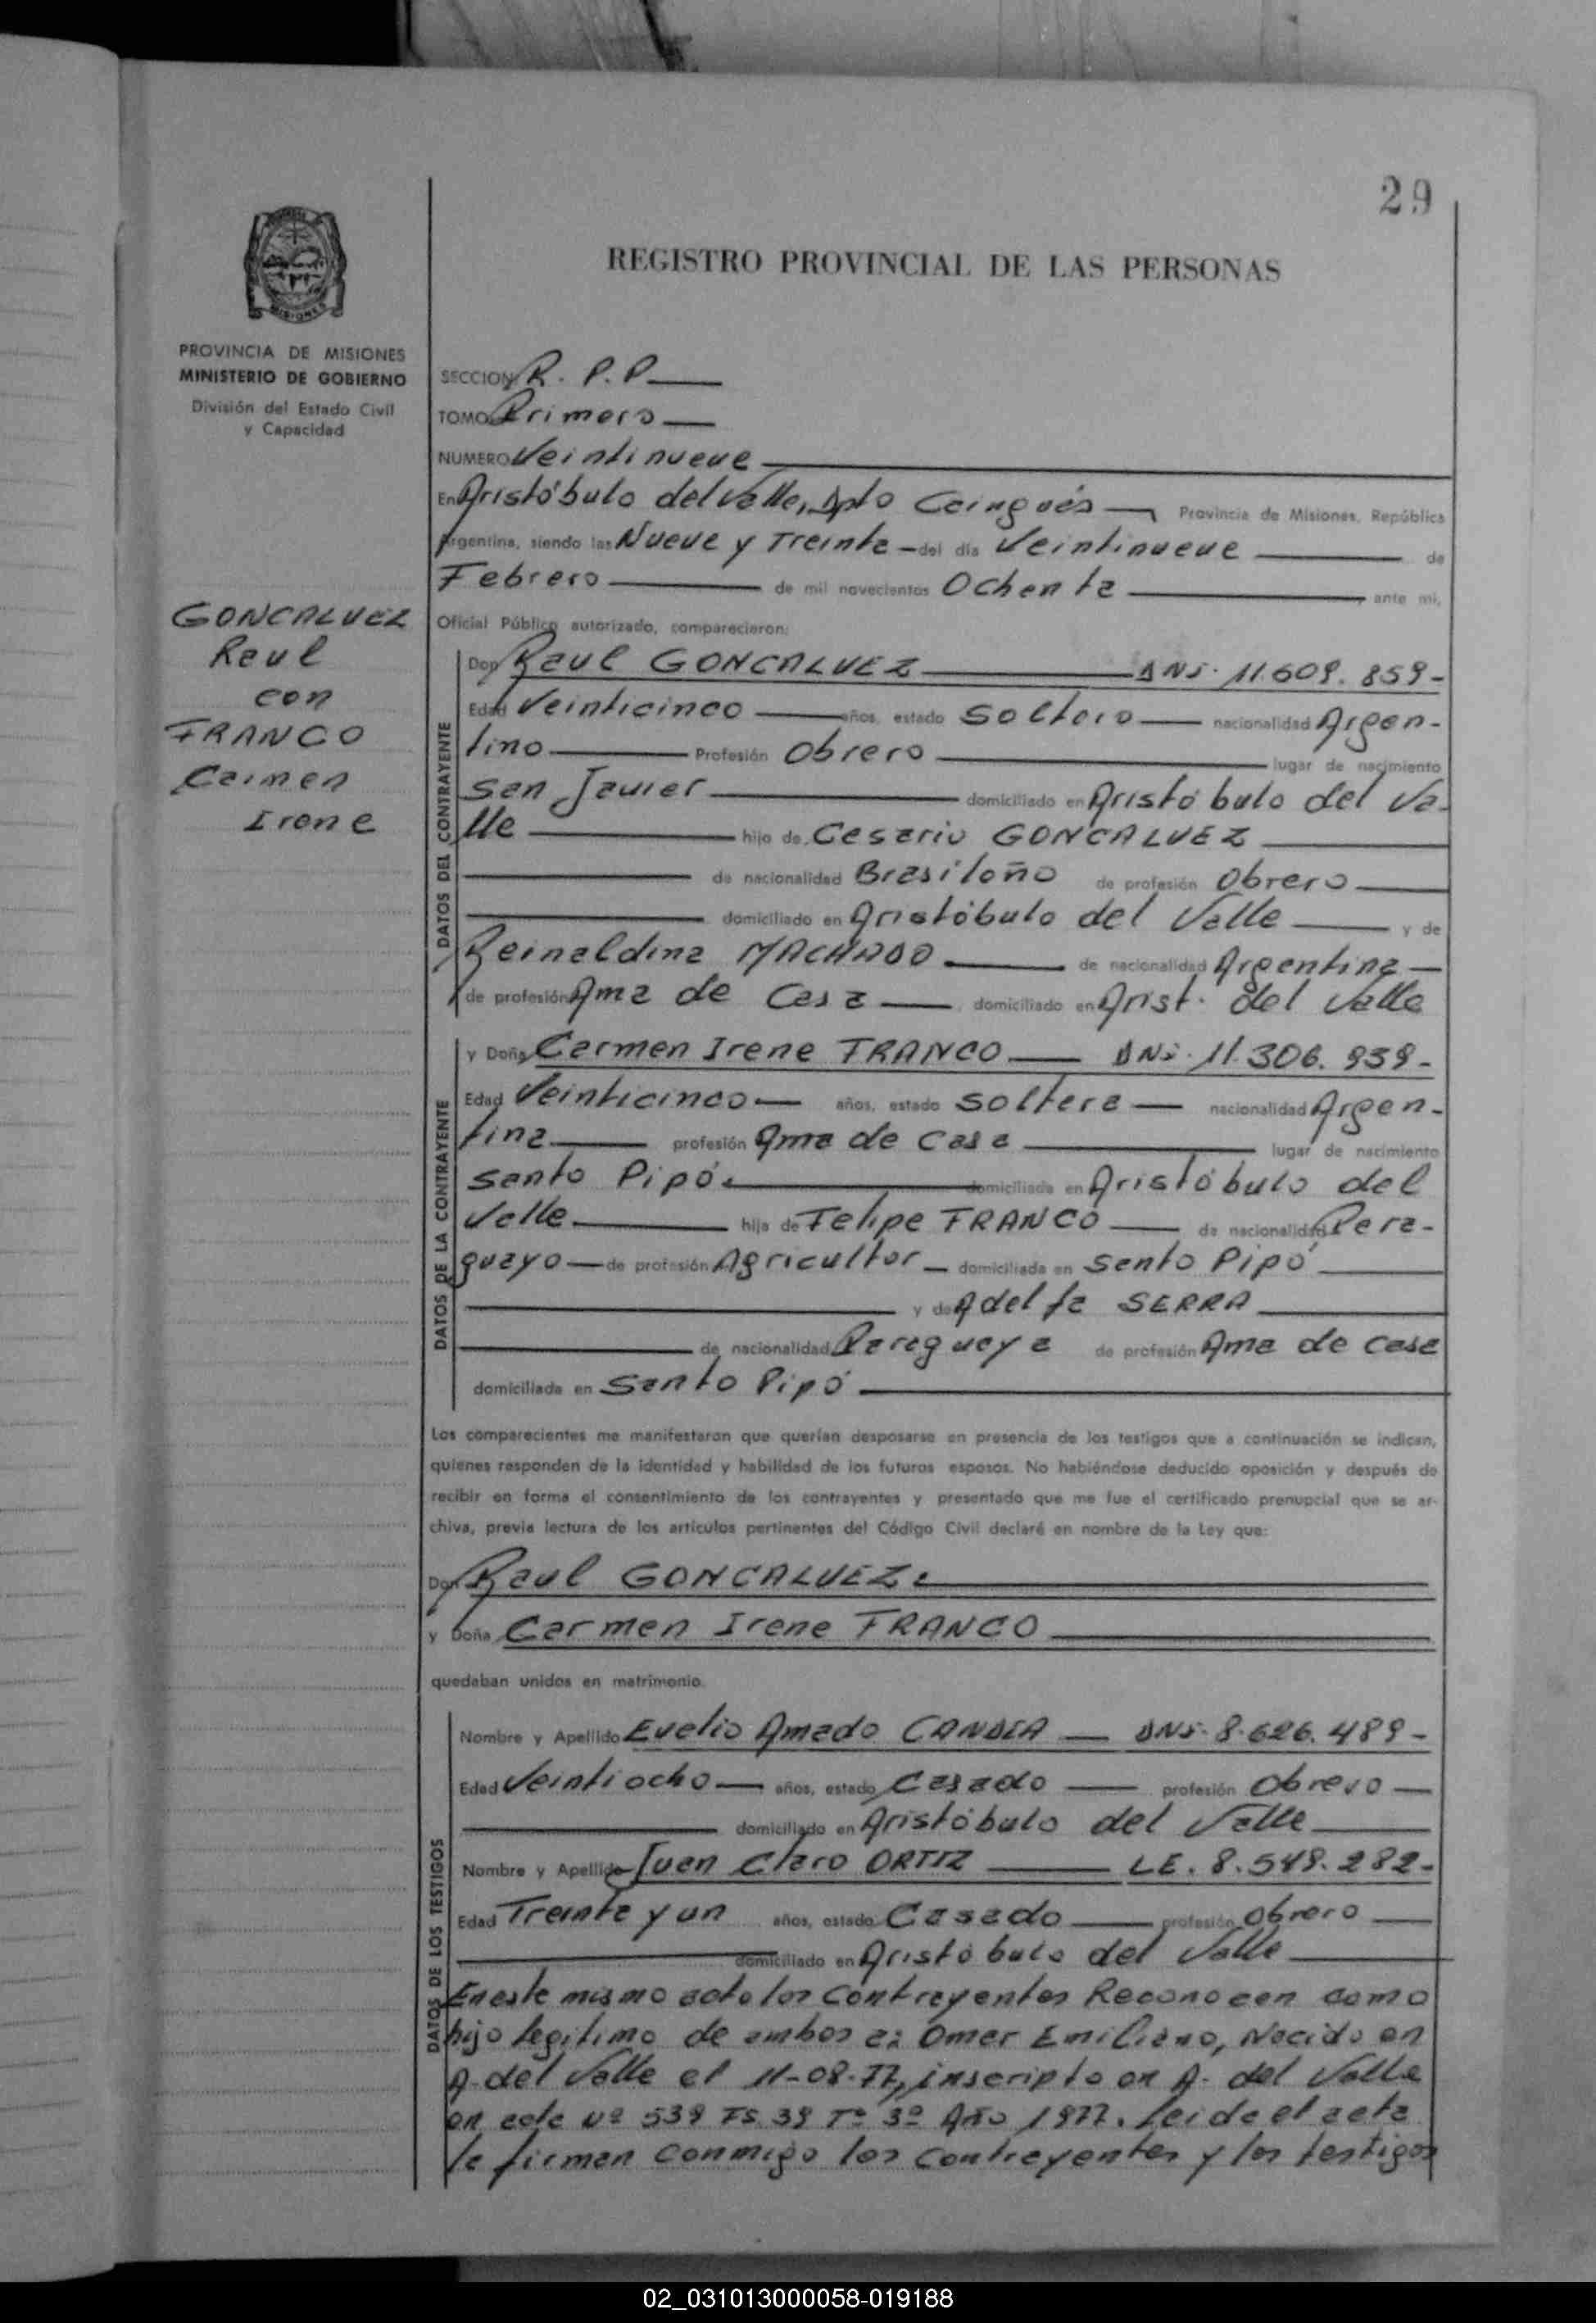 29
REGISTRO PROVINCIAL DE LAS PERSONAS
MISIONES
PROVINCIA DE MISIONES
MINISTERIO DE GOBIERNO
División del Estado Civil
y Capacidad
GONCALVEZ
Raul
con
FRANCO
Carmen
Irene
SECCION R. P. P.
TOMO Primero
NUMERO Veintinueve
En Aristóbulo del Valle, Dpto Cainguás Provincia de Misiones, República
Argentina, siendo las Nueve y Treinta del día Veintinueve de
Febrero de mil novecientos Ochenta, ante mi,
Oficial Público autorizado, comparecieron:
DATOS DEL CONTRAYENTE
Don Raul GONCALVEZ DNI. 11.609.859-
Edad Veinticinco años, estado Soltero nacionalidad Argen-
tino Profesión Obrero lugar de nacimiento
San Javier domiciliado en Aristóbulo del Va-
lle hijo de Cesario GONCALVEZ
de nacionalidad Brasileño de profesión Obrero
domiciliado en Aristóbulo del Valle y de
Reinaldina MACHADO de nacionalidad Argentina
de profesión Ama de Casa, domiciliado en Arist. del Valle
DATOS DE LA CONTRAYENTE
y Doña Carmen Irene FRANCO DNI. 11.306.939-
Edad Veinticinco años, estado Soltera nacionalidad Argen-
tina profesión Ama de Casa lugar de nacimiento
Santo Pipó. domiciliada en Aristóbulo del
Valle hija de Felipe FRANCO de nacionalidad Para-
guayo de profesión Agricultor domiciliada en Santo Pipó
y de Adelfa SERRA
de nacionalidad Paraguaya de profesión Ama de Casa
domiciliada en Santo Pipó
Los comparecientes me manifestaron que querían desposarse en presencia de los testigos que a continuación se indican,
quienes responden de la identidad y habilidad de los futuros esposos. No habiéndose deducido oposición y después de
recibir en forma el consentimiento de los contrayentes y presentado que me fue el certificado prenupcial que se ar-
chiva, previa lectura de los artículos pertinentes del Código Civil declaré en nombre de la Ley que:
Don Raul GONCALVEZ.
y Doña Carmen Irene FRANCO
quedaban unidos en matrimonio.
DATOS DE LOS TESTIGOS
Nombre y Apellido Evelio Amado CANDIA DNI. 8.626.489-
Edad Veintiocho años, estado Casado profesión Obrero
domiciliado en Aristóbulo del Valle
Nombre y Apellido Juan Claro ORTIZ LE. 8.549.282-
Edad Treinta y un años, estado Casado profesión Obrero
domiciliado en Aristóbulo del Valle
En este mismo acto los Contrayentes Reconocen como
hijo legítimo de ambos a: Omar Emiliano, Nacido en
A. del Valle el 11-08-77, inscripto en A. del Valle
en acta Nº 539 Fs. 39 Tº 3º Año 1977. Leida el acta
la firman conmigo los Contrayentes y los testigos
02_031013000058-019188